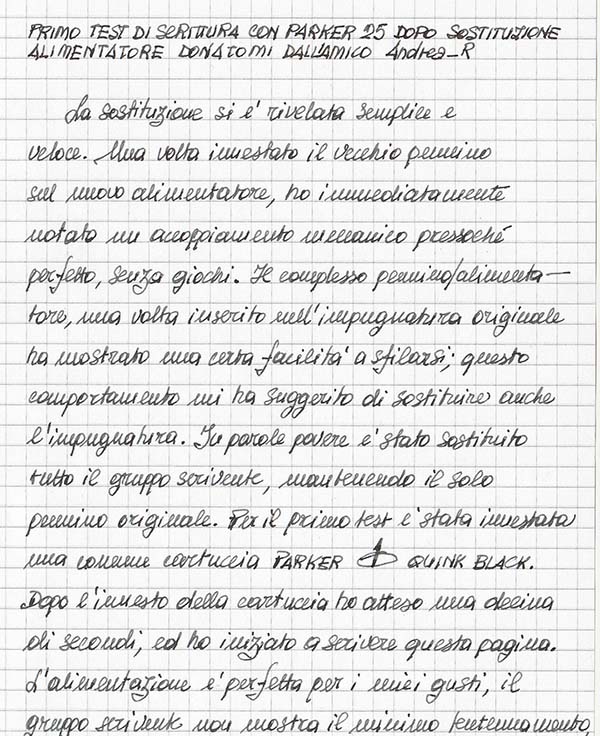 PRIMO TEST DI SCRITTURA CON PARKER 25 DOPO SOSTITUZIONE
ALIMENTATORE DONATOMI DALL'AMICO Andrea_R
La sostituzione si e' rivelata semplice e
veloce. Una volta innestato il vecchio pennino
sul nuovo alimentatore, ho immediatamente
notato un accoppiamento meccanico pressoché
perfetto, senza giochi. Il complesso pennino/alimenta-
tore, una volta inserito nell'impugnatura originale
ha mostrato una certa facilita' a sfilarsi; questo
comportamento mi ha suggerito di sostituire anche
l'impugnatura. In parole povere e' stato sostituito
tutto il gruppo scrivente, mantenendo il solo
pennino originale. Per il primo test e' stata innestata
una comune cartuccia PARKER QUINK BLACK.
Dopo l'innesto della cartuccia ho atteso una decina
di secondi, ed ho iniziato a scrivere questa pagina.
L'alimentazione e' perfetta per i miei gusti, il
gruppo scrivente non mostra il minimo tentennamento,